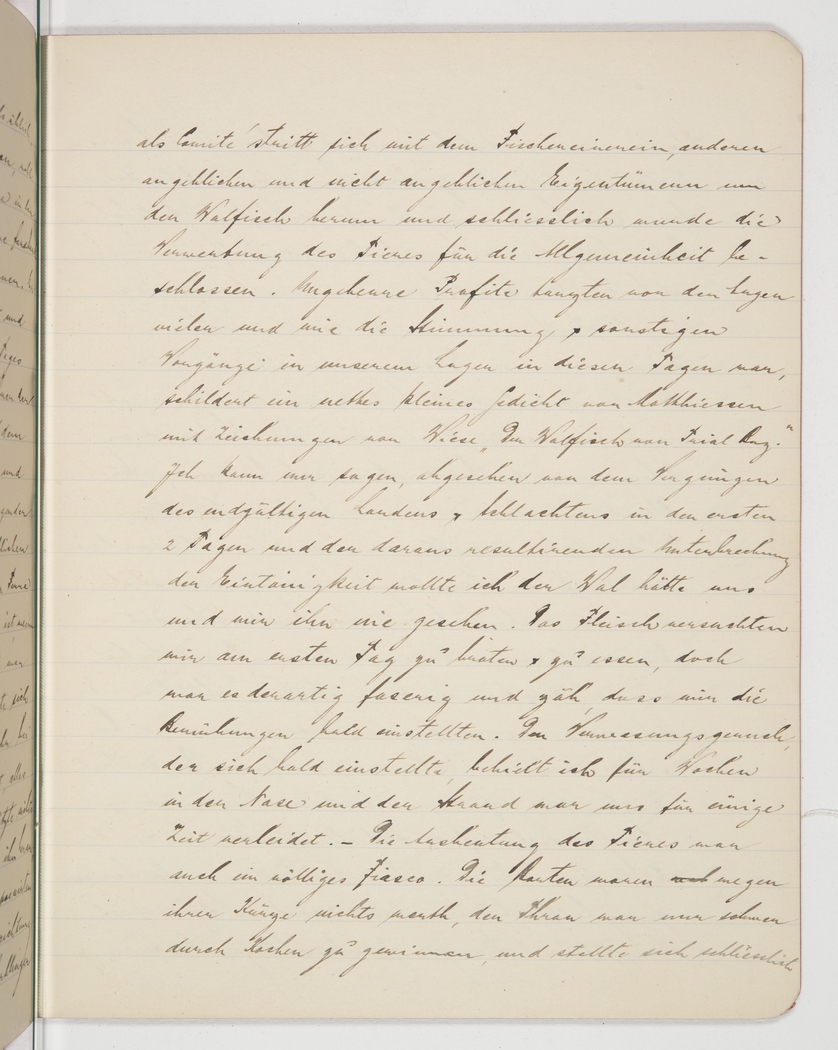 als Comité stritt sich mit dem Fischereiverein, anderen
angeblichen und nicht angeblichen Eigentümern um
den Walfisch herum und schliesslich wurde die
Verwertung des Tieres für die Allgemeinheit be-
schlossen. Ungeheure Profite tanzten vor den Augen
vieler und wie die Stimmung & sonstigen
Vorgänge in unserem Lager in diesen Tagen war,
schildert ein nettes kleines Gedicht von Matthiessen
mit Zeichnungen von Wiese „Der Walfisch von Trial Bay."
Ich kann nur sagen, abgesehen von dem Vergnügen
des endgültigen Landens & Schlachtens in den ersten
2 Tagen und der daraus resultirenden Unterbrechung
der Eintönigkeit wollte ich der Wal hätte uns
und wir ihn nie gesehen. Das Fleisch versuchten
wir am ersten Tag zu braten & zu essen, doch
war es derartig faserig und zäh, dass wir die
Bemühungen bald einstellten. Den Verwesungsgeruch,
der sich bald einstellte, behielt ich für Wochen
in der Nase und der Strand war uns für einige
Zeit verleidet. – Die Ausbeutung des Tieres war
auch ein völliges Fiasco. Die Barten waren wegen
ihrer Kürze nichts werth, der Thran war nur schwer
durch Kochen zu gewinnen, und stellte sich schliesslich